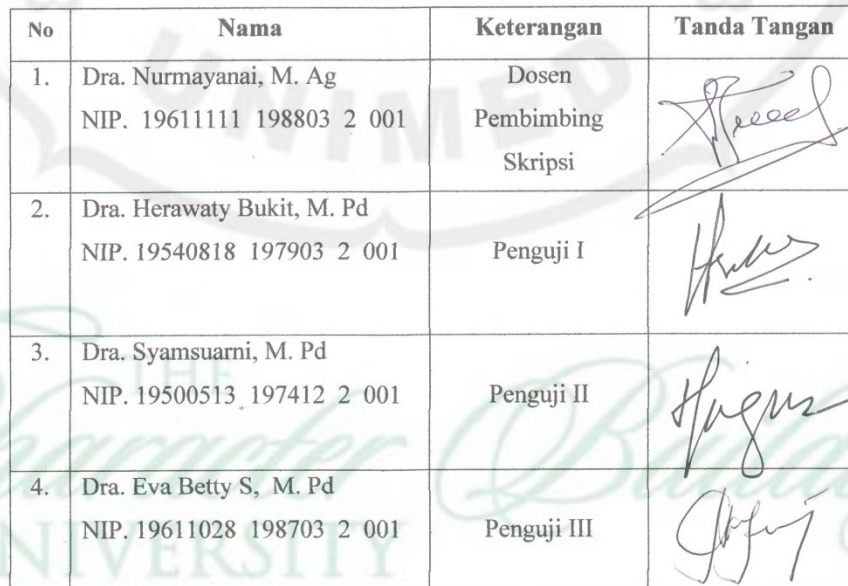 No Nama Keterangan Tanda Tangan
1. Dra. Nurmayanai, M. Ag Dosen
NIP. 19611111 198803 2 001 Pembimbing
Skripsi
2. Dra. Herawaty Bukit, M. Pd
NIP. 19540818 197903 2 001 Penguji I
3. Dra. Syamsuarni, M. Pd
NIP. 19500513 197412 2 001 Penguji II
4. Dra. Eva Betty S, M. Pd
NIP. 19611028 198703 2 001 Penguji III
UNIMED
THE
Character
UNIVERSITY